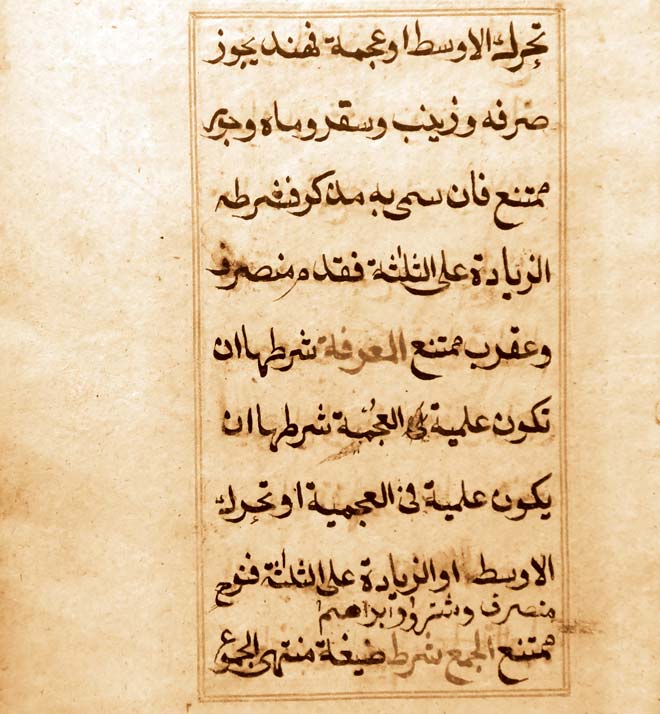 تحرك الاوسط او عجمة فهند يجوز
صرفه وزينب وسقر وماه وجور
ممتنع فان سمى به مذكر فشرطه
الزيادة على الثلثة فقدم منصرف
وعقرب ممتنع المعرفة شرطها ان
تكون علمية العجمة شرطها ان
يكون علمية فى العجمية او تحرك
الاوسط او الزيادة على الثلثة فنوح
منصرف وشتر وابراهيم
ممتنع الجمع شرط صيغة منتهى الجموع